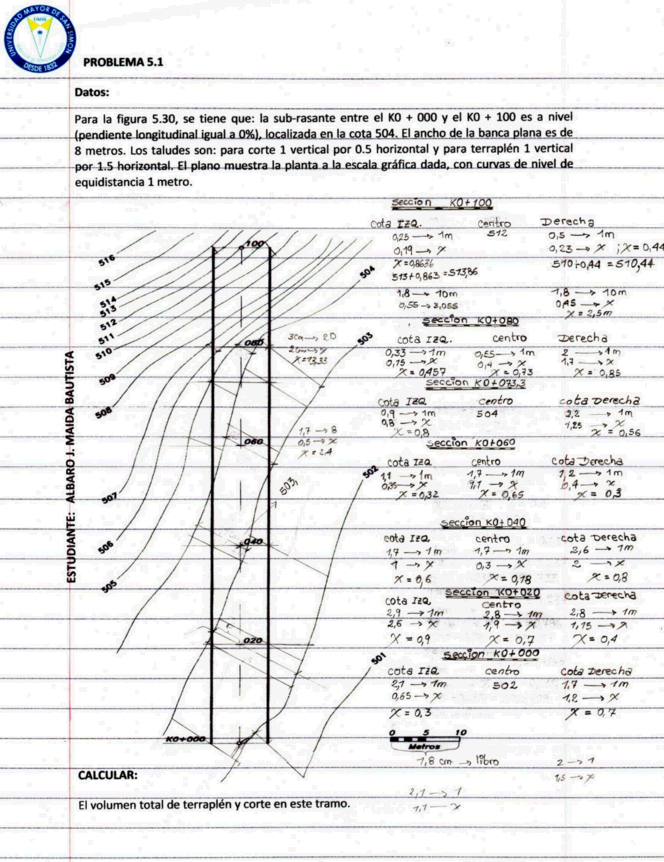 UNIVERSIDAD MAYOR DE SAN SIMON
DESDE 1832
PROBLEMA 5.1
Datos:
Para la figura 5.30, se tiene que: la sub-rasante entre el K0 + 000 y el K0 + 100 es a nivel
(pendiente longitudinal igual a 0%), localizada en la cota 504. El ancho de la banca plana es de
8 metros. Los taludes son: para corte 1 vertical por 0.5 horizontal y para terraplén 1 vertical
por 1.5 horizontal. El plano muestra la planta a la escala gráfica dada, con curvas de nivel de
equidistancia 1 metro.
ESTUDIANTE: ALBARO J. MAIDA BAUTISTA
516
515
514
513
512
511
510
509
508
507
506
505
504
503
503
502
501
100
080
060
040
020
K0+000
3cm → 20
x=13.33
1,7 → 8
0,5 → x
x = 2.4
seccion K0+100
cota IZQ. centro Derecha
0,25 → 1m 512 0,5 → 1m
0,19 → x 0,23 → x ; x= 0,44
x=0,8636 510+0,44 = 510,44
513+0,863 = 513,86
1,8 → 10m 1,8 → 10m
0,55 → 3,055 0,45 → x
x = 2,5m
seccion K0+080
cota IZQ. centro Derecha
0,33 → 1m 0,55 → 1m 2 → 1m
0,15 → x 0,4 → x 1,7 → x
x = 0,457 x = 0,73 x = 0,85
seccion K0+073,3
cota IZQ centro cota Derecha
0,9 → 1m 504 2,2 → 1m
0,8 → x 1,25 → x
x = 0,8 x = 0,56
seccion K0+060
cota IZQ centro cota Derecha
1,1 → 1m 1,7 → 1m 1,2 → 1m
0,35 → x 1,1 → x 0,4 → x
x = 0,32 x = 0,65 x = 0,3
seccion K0+040
cota IZQ. centro cota Derecha
1,7 → 1m 1,7 → 1m 2,6 → 1m
1 → x 0,3 → x 2 → x
x = 0,6 x = 0,18 x = 0,8
seccion K0+020
cota IZQ, centro cota Derecha
2,9 → 1m 2,8 → 1m 2,8 → 1m
2,6 → x 1,9 → x 1,15 → x
x = 0,9 x = 0,7 x = 0,4
seccion K0+000
cota IZQ centro cota Derecha
2,1 → 1m 502 1,7 → 1m
0,65 → x 1,2 → x
x = 0,3 x = 0,7
0 5 10
Metros
1,8 cm → libro
2 → 1
1,5 → x
2,1 → 1
1,1 → x
CALCULAR:
El volumen total de terraplén y corte en este tramo.